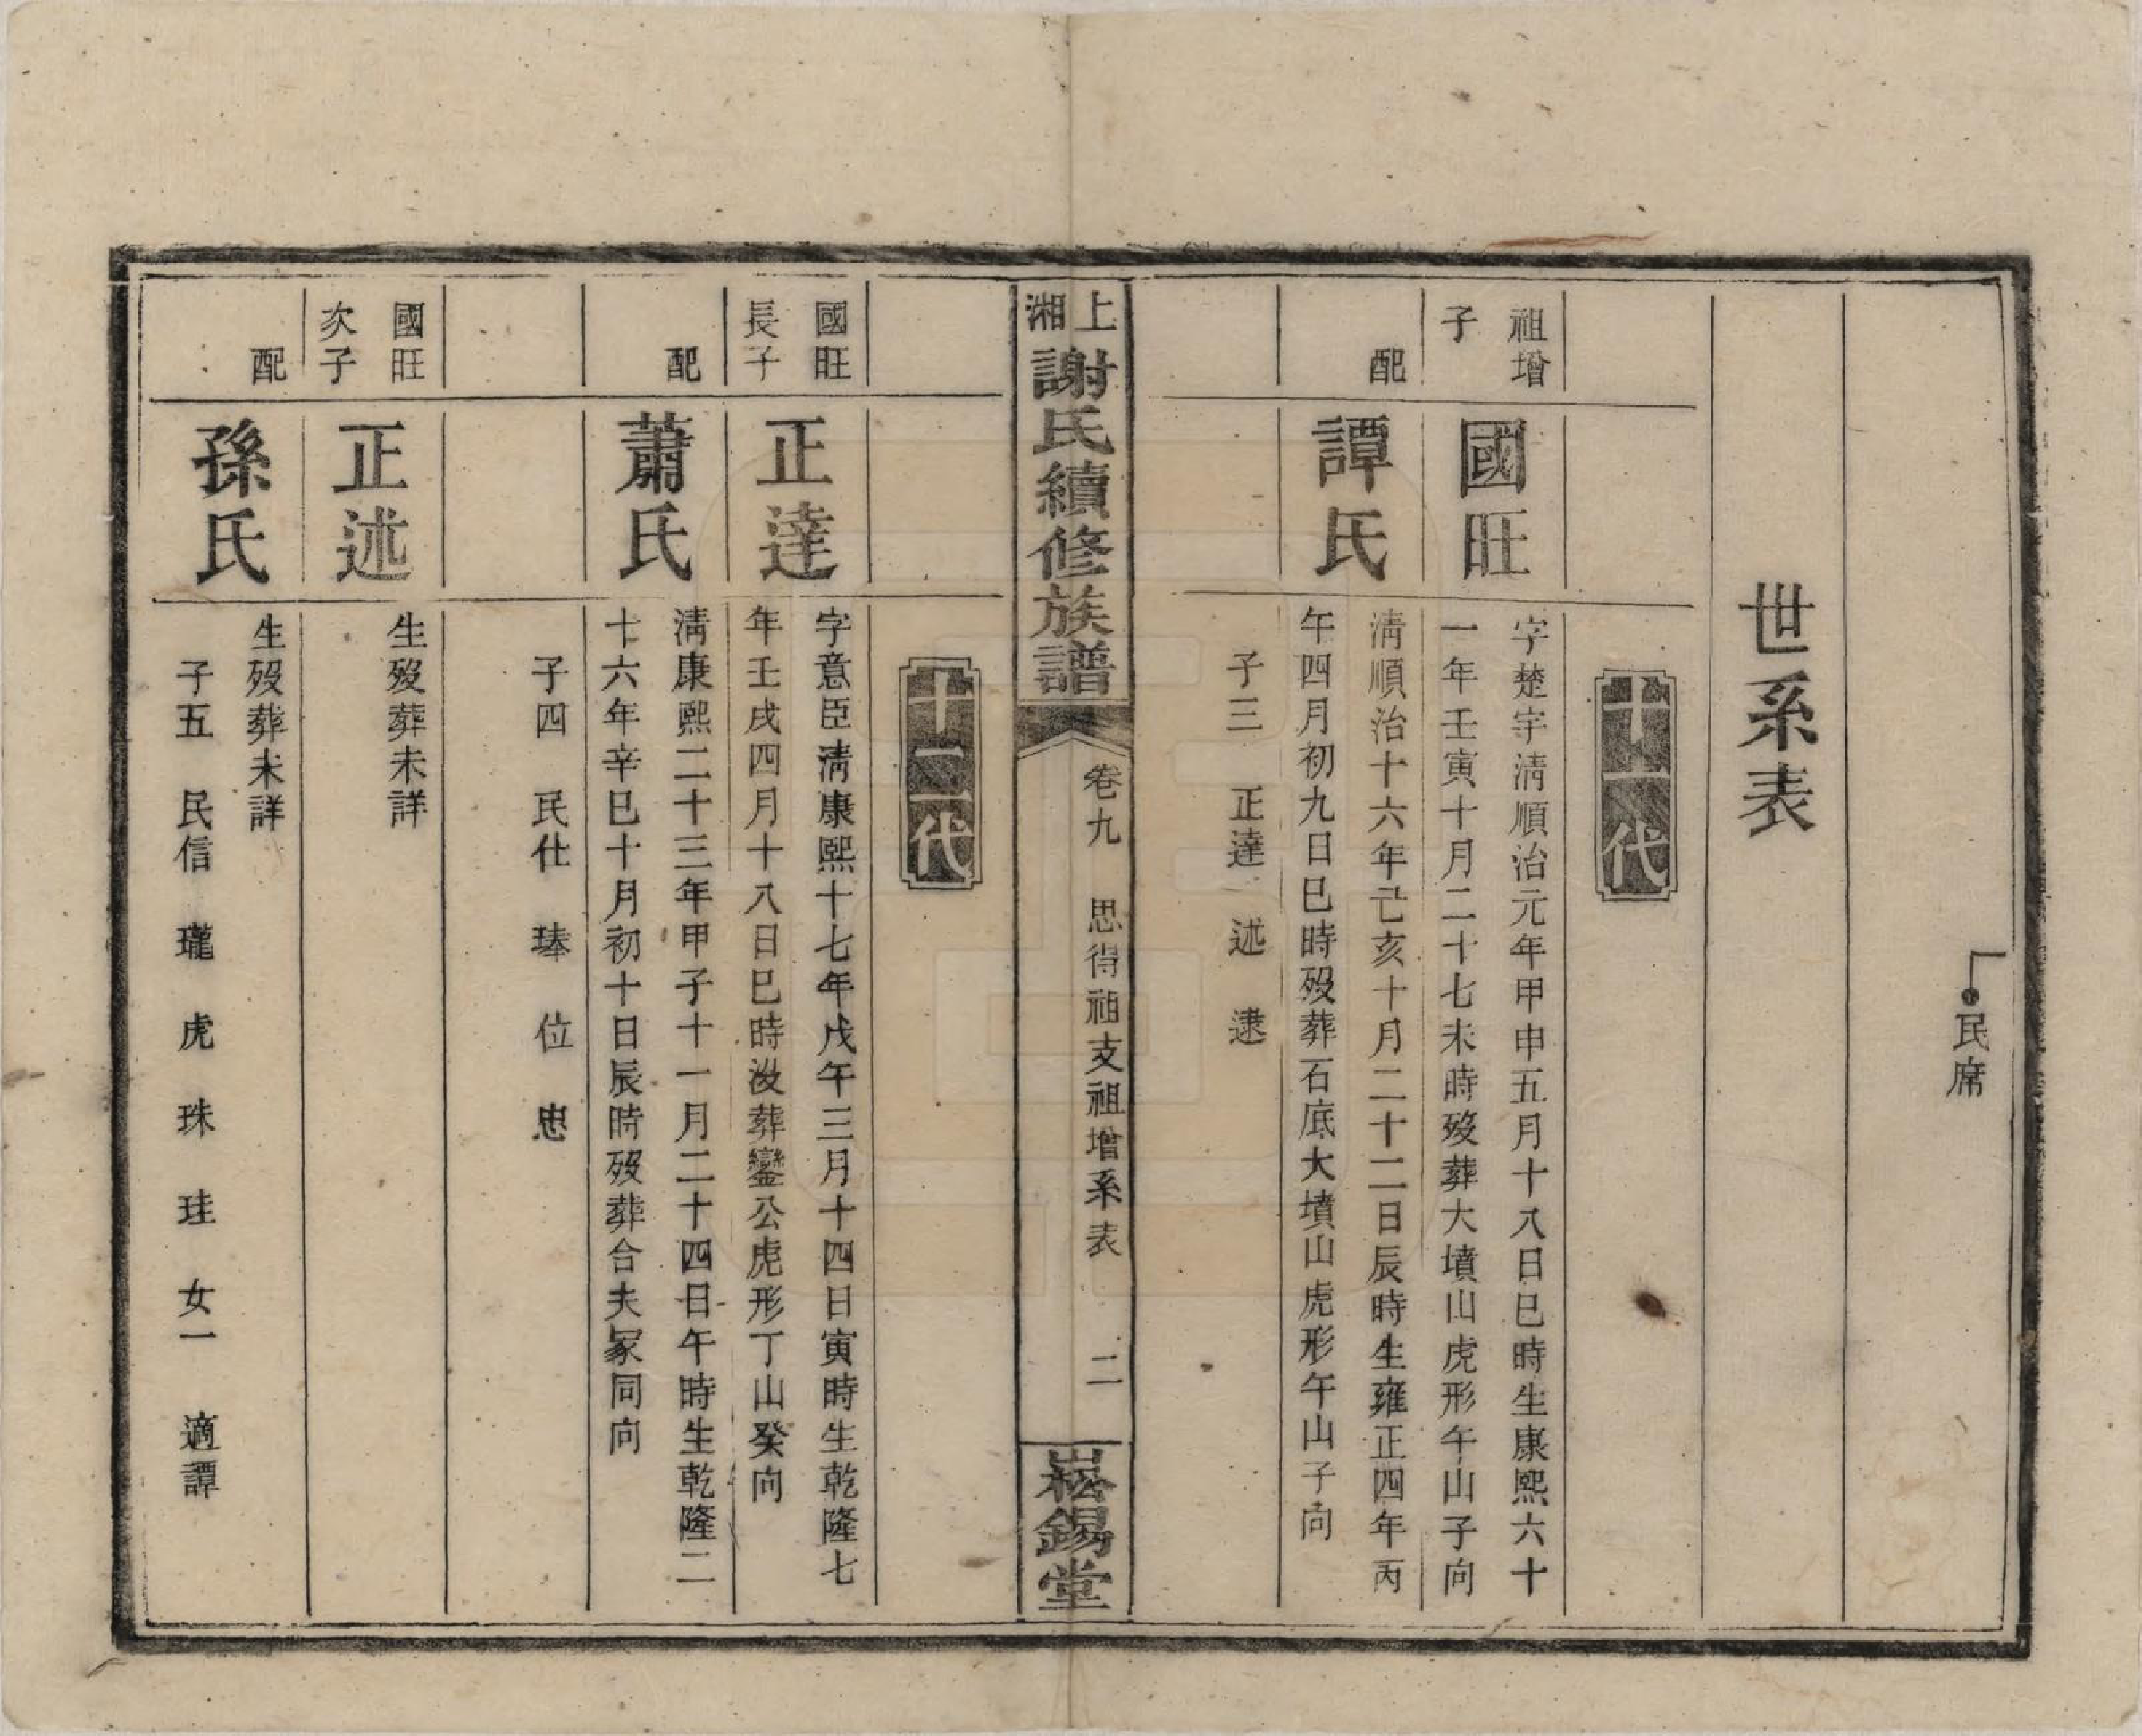 民席
世系表
十一代
祖增
子
國旺
字楚宇清順治元年甲申五月十八日巳時生康熙六十
一年壬寅十月二十七未時歿葬大墳山虎形午山子向
配
譚氏
清順治十六年己亥十月二十二日辰時生雍正四年丙
午四月初九日巳時歿葬石底大墳山虎形午山子向
子三 正達 述 逮
上湘
謝氏續修族譜
卷九 思得祖支祖增系表 二
崧錫堂
十二代
國旺
長子
正達
字意臣清康熙十七年戊午三月十四日寅時生乾隆七
年壬戌四月十八日巳時沒葬鑾公虎形丁山癸向
配
蕭氏
清康熙二十三年甲子十一月二十四日午時生乾隆二
十六年辛巳十月初十日辰時歿葬合夫冢同向
子四 民仕 琫 位 忠
國旺
次子
正述
生歿葬未詳
配
孫氏
生歿葬未詳
子五 民信 瓏 虎 珠 珪 女一 適譚